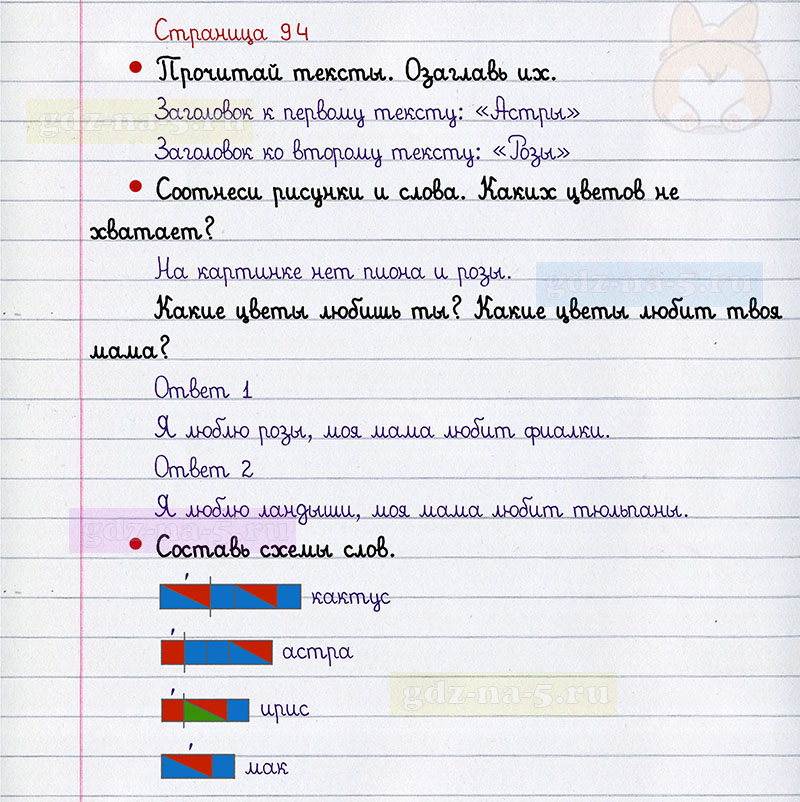 Страница 94
Прочитай тексты. Озаглавь их.
Заголовок к первому тексту: «Астры»
gdz-na-5.ru
Заголовок ко второму тексту: «Розы»
Соотнеси рисунки и слова. Каких цветов не
хватает?
На картинке нет пиона и розы.
gdz-na-5.ru
Какие цветы любишь ты? Какие цветы любит твоя
мама?
Ответ 1
Я люблю розы, моя мама любит фиалки.
Ответ 2
Я люблю ландыши, моя мама любит тюльпаны.
gdz-na-5.ru
Составь схемы слов.
кактус
астра
gdz-na-5.ru
ирис
мак